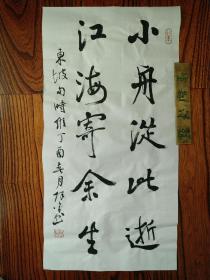 小舟從此逝
江海寄余生
東坡句時維丁酉年月